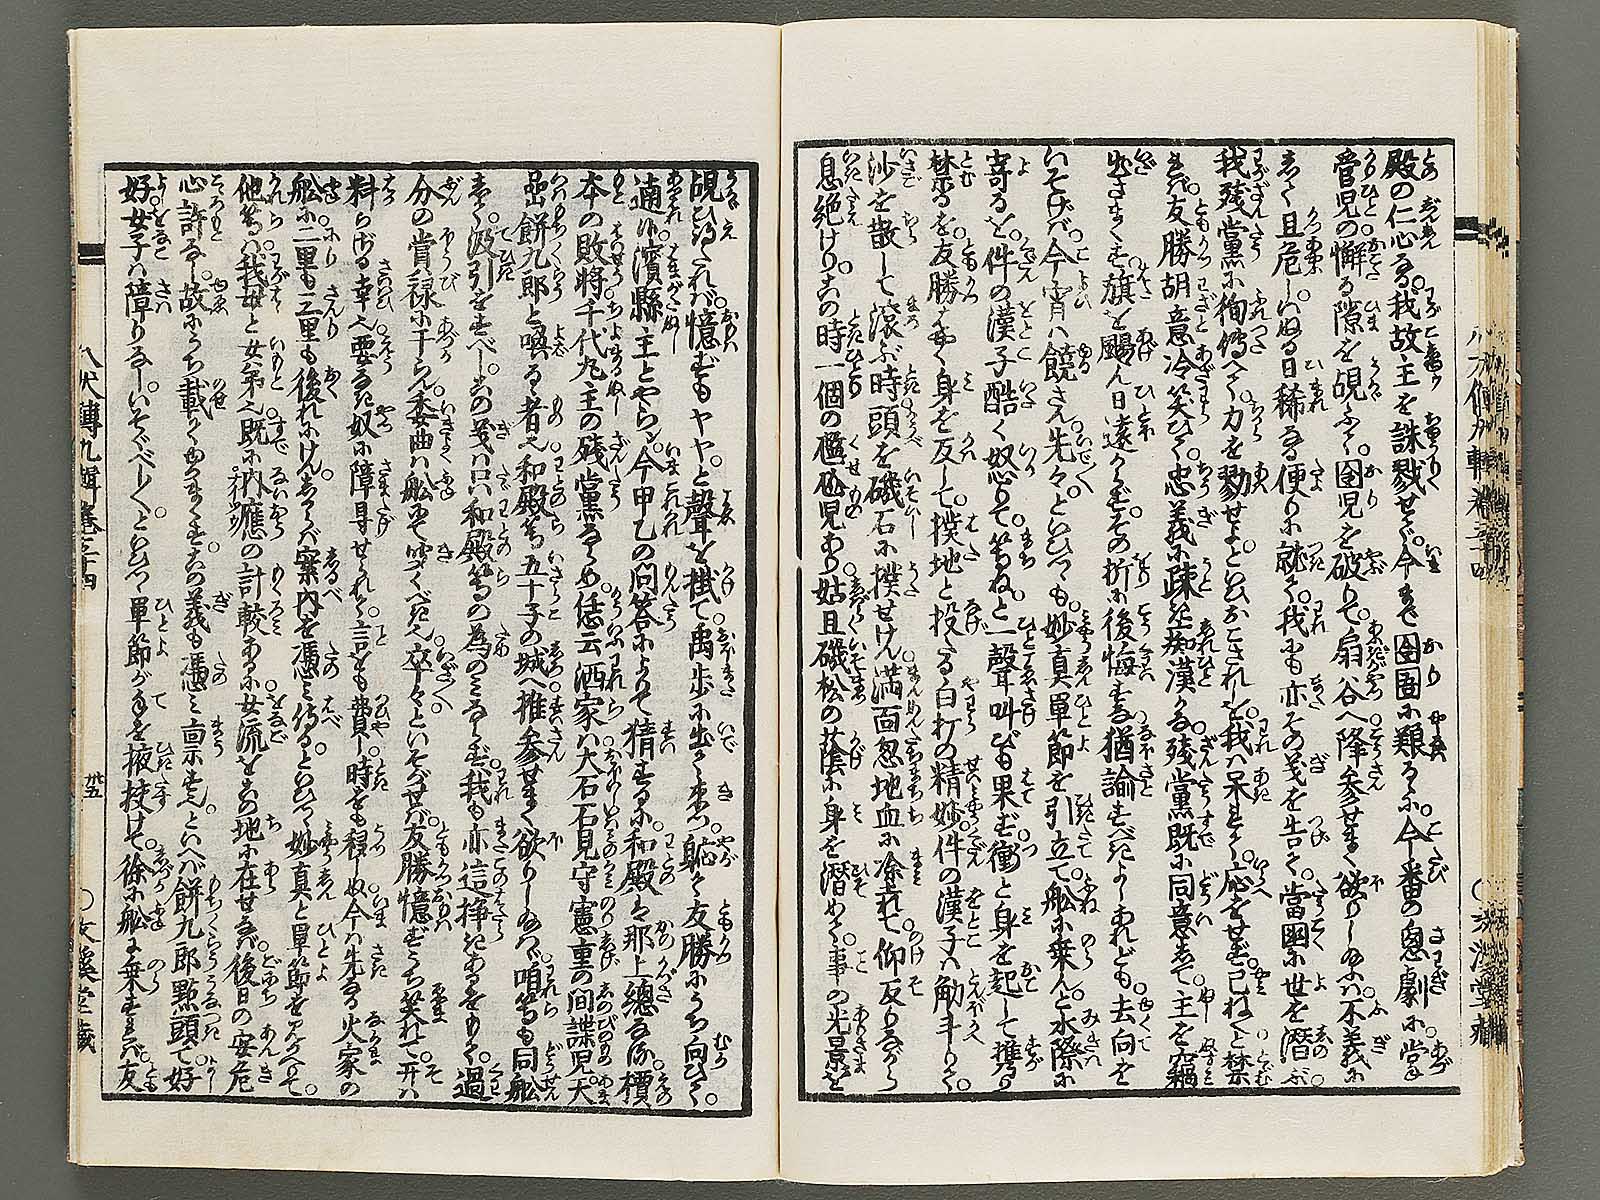 殿の仁心る。我故主を誅戮せで。今まで囹圄に繋るゝに。今番の怱劇に。當
管児の懈る隙を覘ふて。囹児を破りて。扇谷へ降参せまく欲りしぬるハ。不義に
して且危し。いぬる日稀なる便りに就て。我にも亦その義を告て。當國に世を潜ぶ
我残黨に徇傳へて。力を勠せよといひおこされしを。我ハ呆れて。応をせず。已ねと禁め
しを。友勝胡意冷笑ひて。忠義に疎き痴漢かな。残黨既に同意して。主を竊
出さまくす。旗を颺ん日遠からず。その折に後悔すな。猶諭すべきよしあれども。去向を
いそげバ。今宵ハ饒さん。先々。といひつゝも。妙真單節を引立て。船に乗んと水際に
寄るを。件の漢子酷く怒りて。等ね。と一聲叫びも果ず。衝と身を起して推
禁るを。友勝はやく身を反して。撲地と投たる白打の精妙。件の漢子ハ觔斗りて。
沙を散して滾ぶ時。頭を磯石に撲せけん。満面忽地血に塗れて。仰反りながら
息絶けり。この時一個の癖者児あり。姑且磯松の蔭に身を潜めて。事の光景を
覘ひたれバ。憶ずもヤヤ。と聲を掛て。禹歩に出て来つ。躬て友勝にうち向ひて。
逋ハ濱縣主とやらン。今甲乙の问答によりて猜するに。和殿ハ那上總なる。榎
本の敗將千代丸主の殘黨なるめ。恁云洒家ハ大石石見守憲重の間諜児。天
嵒餅九郎と喚るゝ者也。和殿等五十子の城へ推参せまく欲りしぬるハ。咱等も同船
して。汲引をすべし。この義ハ只和殿等の為のミならず。我も亦這挊きあるをもて。過
分の賞禄に干らん。委曲ハ船にて譚くべき也。卒々。といそがせバ。友勝憶ずうち笑れて。开ハ
料らざる幸也。要なき奴に障㝵せられて。言をも費し。時をも移しぬ。今ハ先なる火家の
船に二里も三里も後れにけん。さらバ案内を憑ミ侍る。といひつゝ妙真と單節を見かへりて。
他等ハ我母と女弟也。既に内應の計較あるに。女流をこの地に在せなバ。後日の安危
心許なし。故にうち載てゆかまくす。この義も憑ミ尓示す。といへバ餅九郎點頭て。好
好。女子ハ障りなし。いそぐべしいそぐべし。といひつゝ單節が手を掖扶けて。徐に船に乗すれバ。友
八犬傳九輯巻三十四
丗五
文溪堂藏